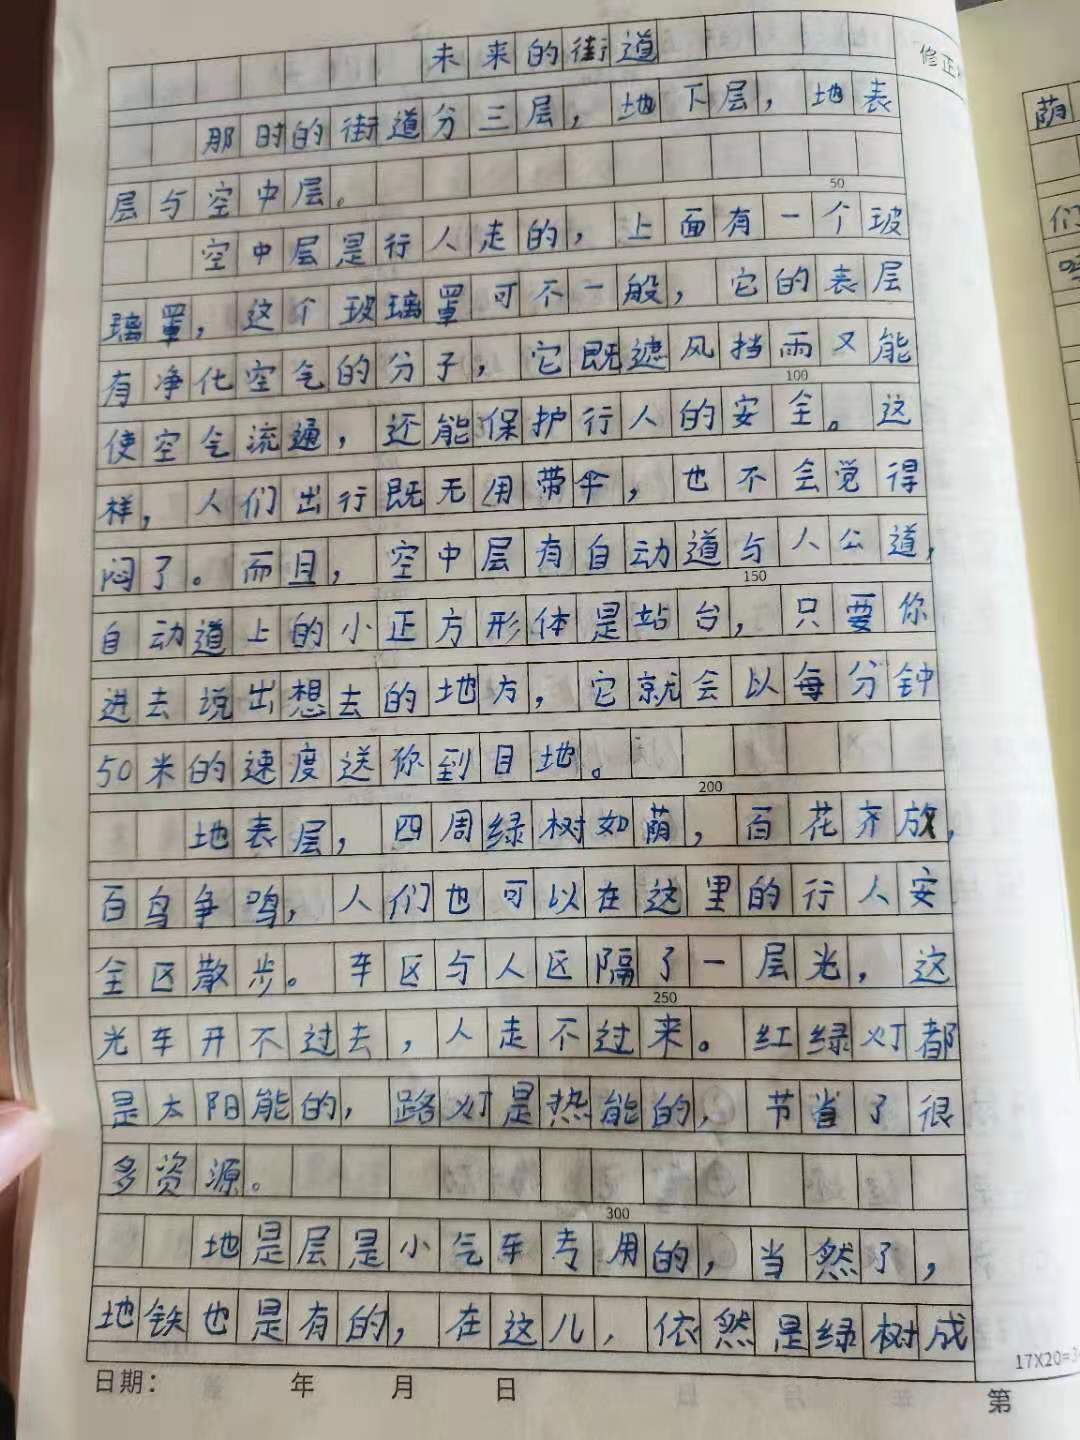 未来的街道
修正
那时的街道分三层，地下层，地表
层与空中层。
50
空中层是行人走的，上面有一个玻
璃罩，这个玻璃罩可不一般，它的表层
有净化空气的分子，它既遮风挡雨又能
100
使空气流通，还能保护行人的安全。这
样，人们出行既无用带伞，也不会觉得
闷了。而且，空中层有自动道与人公道，
150
自动道上的小正方形体是站台，只要你
进去说出想去的地方，它就会以每分钟
50米的速度送你到目地。
200
地表层，四周绿树如荫，百花齐放，
百鸟争鸣，人们也可以在这里的行人安
全区散步。车区与人区隔了一层光，这
250
光车开不过去，人走不过来。红绿灯都
是太阳能的，路灯是热能的，节省了很
多资源。
300
地是层是小气车专用的，当然了，
地铁也是有的，在这儿，依然是绿树成
17X20=3
日期： 年 月 日
第
荫
们